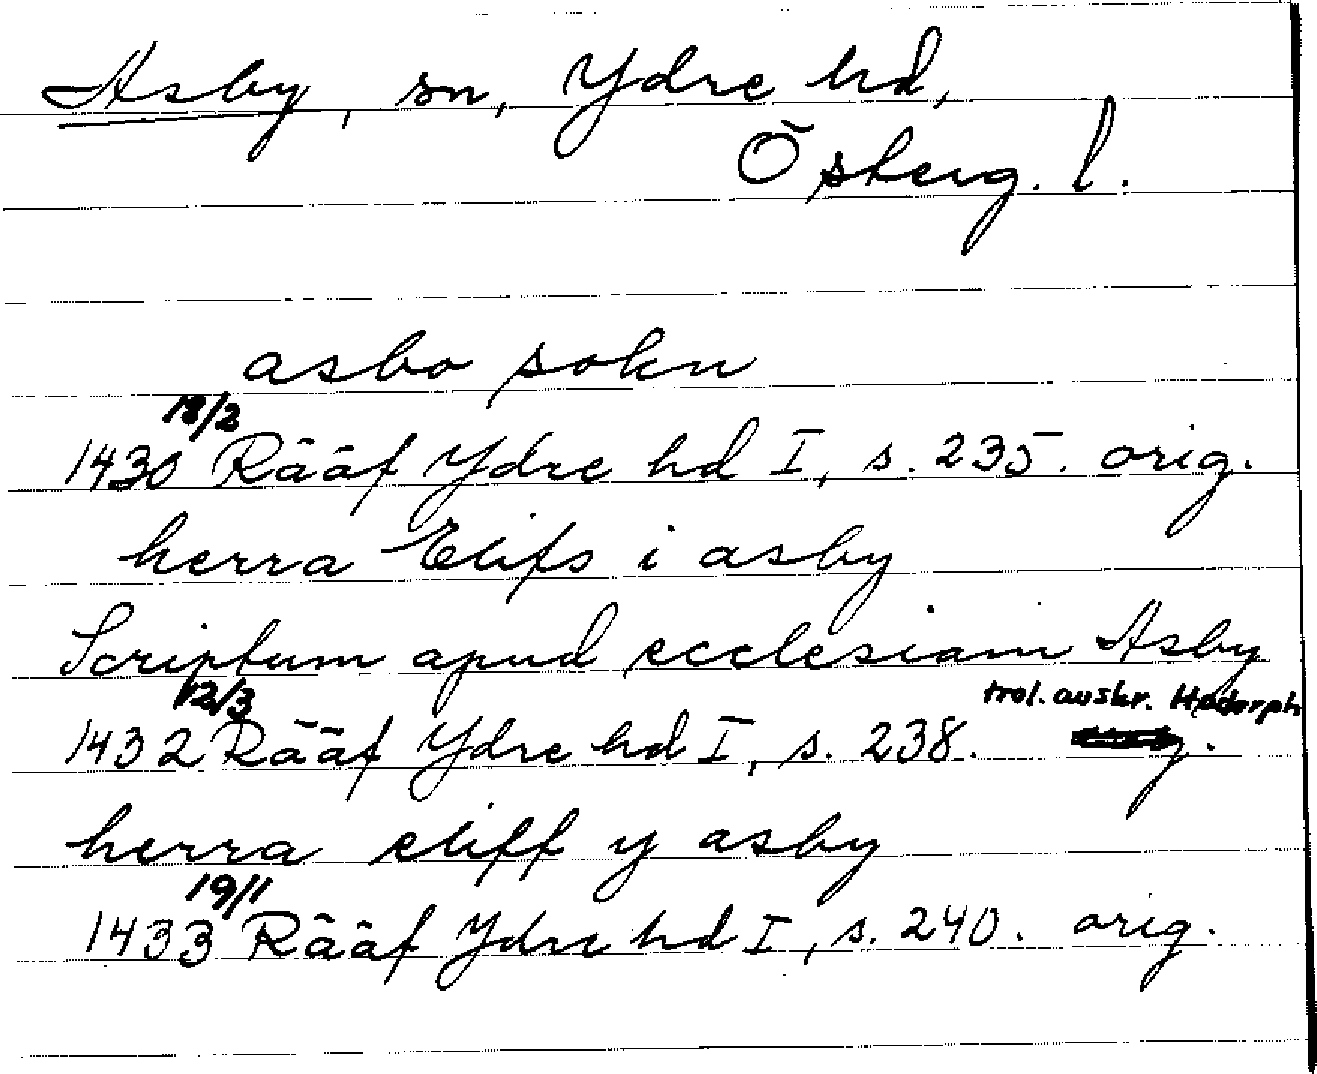 Asby, sn, Ydre hd,
Östergötl. l.
asbo sokn
18/2
1430 Rääf Ydre hd I, s. 235. orig.
herra Elifs i asby
Scriptum apud ecclesiam Asby
12/3 trol. avskr. Hadorph
1432 Rääf Ydre hd I, s. 238.
herra eliff y asby
19/1
1433 Rääf Ydre hd I, s. 240. orig.